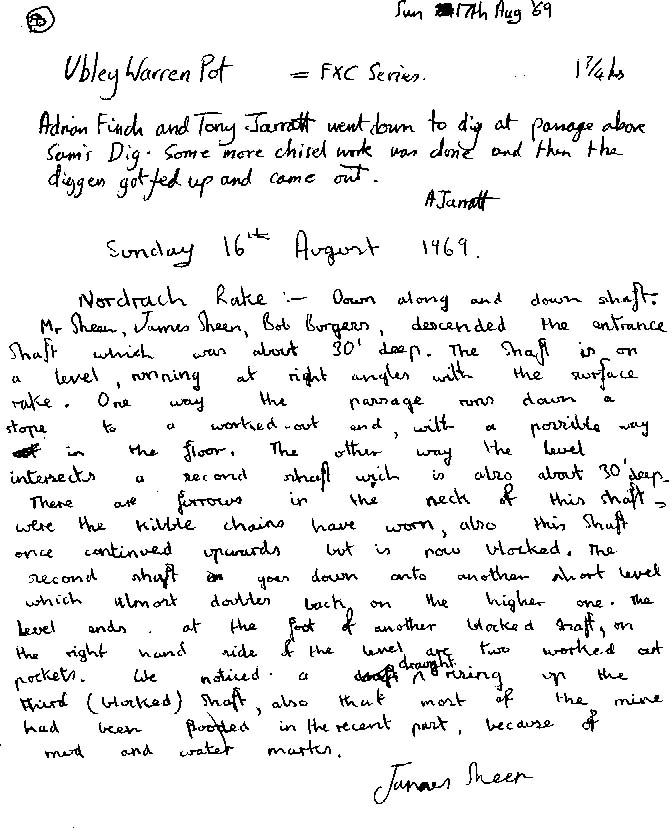 Sun 17th Aug '69
Ubley Warren Pot = FXC Series. 1 3/4 hs
Adrian Finch and Tony Jarratt went down to dig at passage above
Sam's Dig. Some more chisel work was done and then the
diggers got fed up and came out.
A Jarratt
Sunday 16th August 1969.
Nordrach Rake :- Down along and down shaft.
Mr Sheen, James Sheen, Bob Burgess, descended the entrance
shaft which was about 30' deep. The shaft is on
a level, running at right angles with the surface
rake. One way the passage runs down a
stope to a worked-out end, with a possible way
in the floor. The other way the level
intersects a second shaft wich is also about 30' deep.
There are furrows in the neck of this shaft
were the kibble chains have worn, also this shaft
once continued upwards but is now blocked. The
second shaft goes down onto another short level
which almost doubles back on the higher one. The
level ends at the foot of another blocked shaft, on
the right hand side of the level are two worked out
pockets. We noticed a draught rising up the
third (blocked) shaft, also that most of the mine
had been flooded in the recent past, because of
mud and water marks.
James Sheen